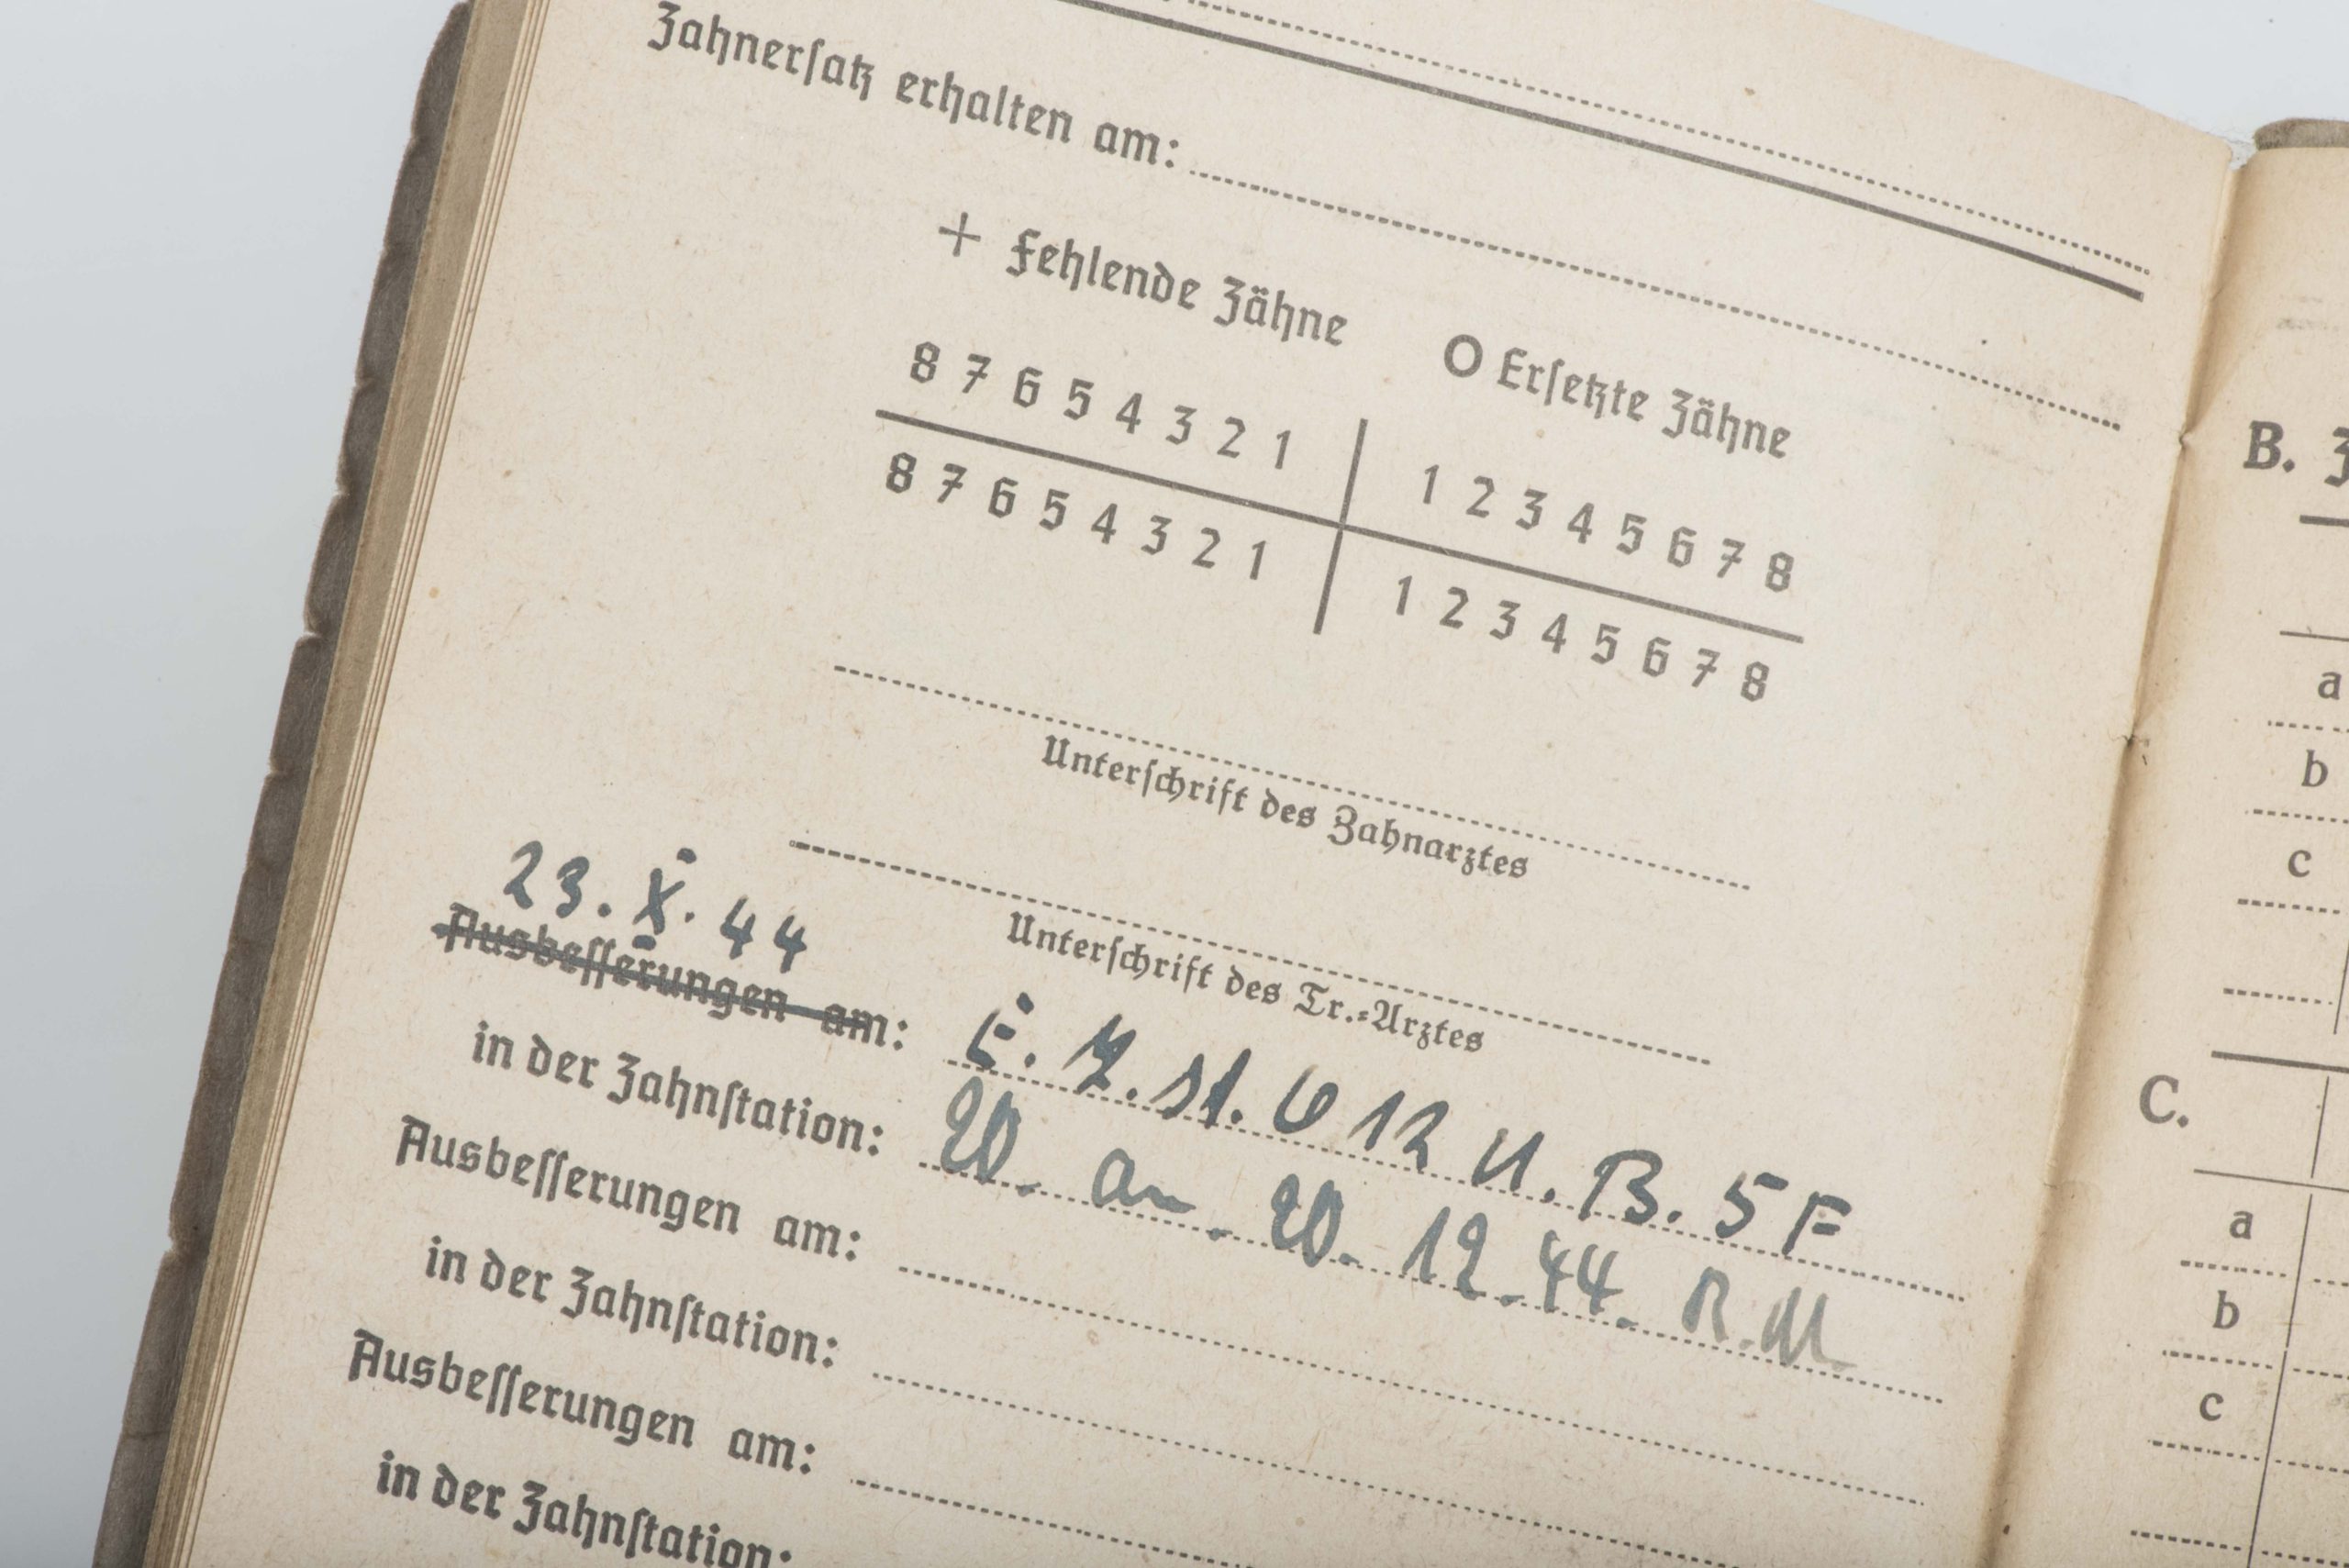 Zahnersatz erhalten am:
+ Fehlende Zähne O Ersetzte Zähne
8 7 6 5 4 3 2 1 1 2 3 4 5 6 7 8
8 7 6 5 4 3 2 1 1 2 3 4 5 6 7 8
Unterschrift des Zahnarztes
Unterschrift des Tr.-Arztes
23. X. 44
Ausbesserungen am: E. M. St. 612 U. B. 5 F
in der Zahnstation: 20. an. 20. 12. 44. R. M.
Ausbesserungen am:
in der Zahnstation:
Ausbesserungen am:
in der Zahnstation:
B.
a
b
c
C.
a
b
c